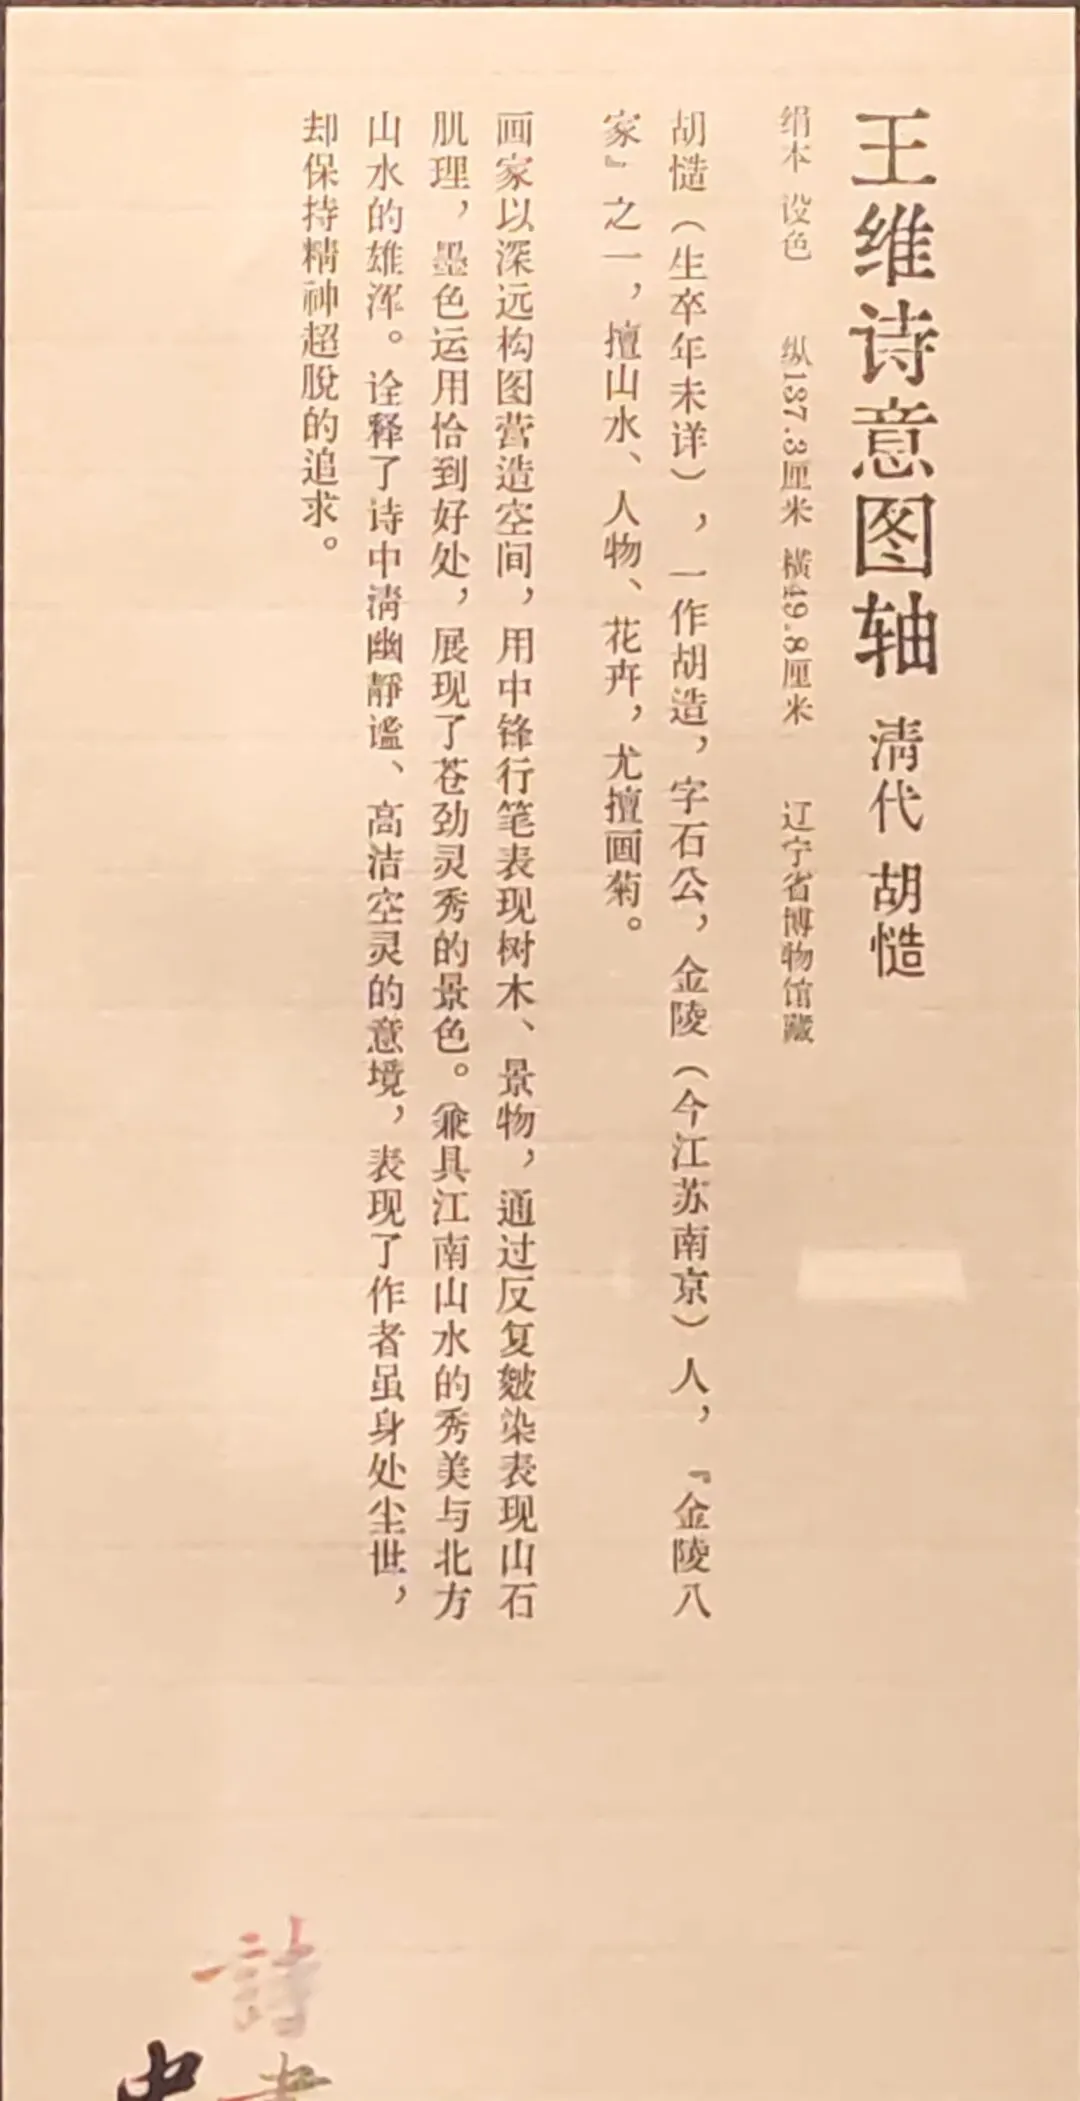 王维诗意图轴 清代 胡慥
绢本 设色 纵187.3厘米 横49.8厘米 辽宁省博物馆藏
胡慥（生卒年未详），一作胡造，字石公，金陵（今江苏南京）人，『金陵八
家』之一，擅山水、人物、花卉，尤擅画菊。
画家以深远构图营造空间，用中锋行笔表现树木、景物，通过反复皴染表现山石
肌理，墨色运用恰到好处，展现了苍劲灵秀的景色。兼具江南山水的秀美与北方
山水的雄浑。诠释了诗中清幽静谧、高洁空灵的意境，表现了作者虽身处尘世，
却保持精神超脱的追求。
詩
中